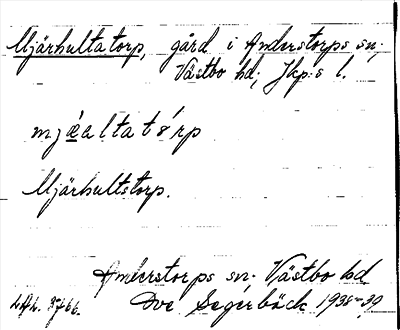 Mjärhultatorp, gård i Anderstorps sn;
Västbo hd; Jkp:s l.
mjǽaltatórp
Mjärhultstorp.
Anderstorps sn. Västbo hd
Ove Segerbäck 1938-39.